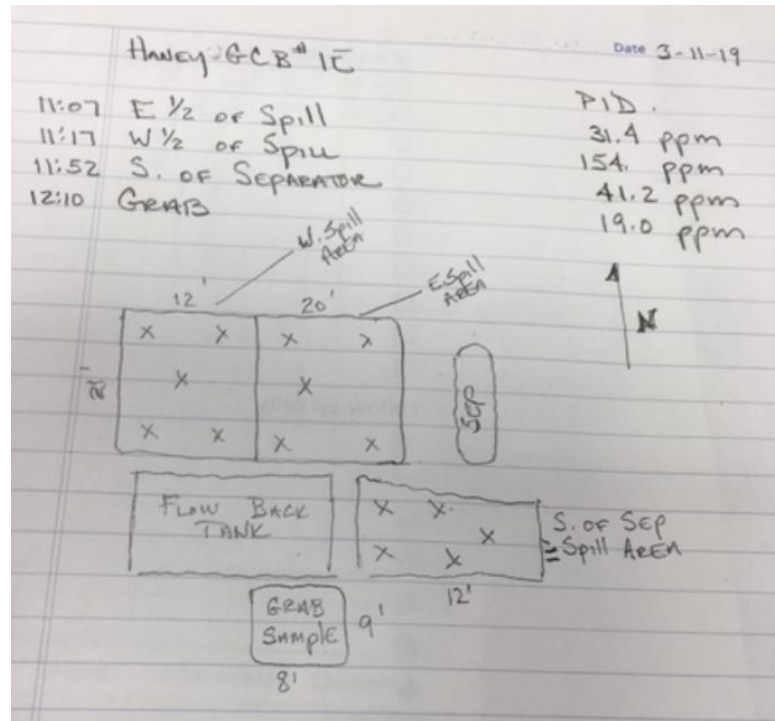 Date 3-11-19
HANEY GCB #1E
PID.
11:07 E 1/2 OF Spill 31.4 ppm
11:17 W 1/2 OF SPILL 154. ppm
11:52 S. OF SEPARATOR 41.2 ppm
12:10 GRAB 19.0 ppm
W. Spill
AREA
E. Spill
AREA
12' 20'
N
X X X X
X X
SEP
X X X X
FLOW BACK
TANK
X X
X
X X
S. OF SEP
Spill AREA
12'
GRAB
SAMPlE
9'
8'